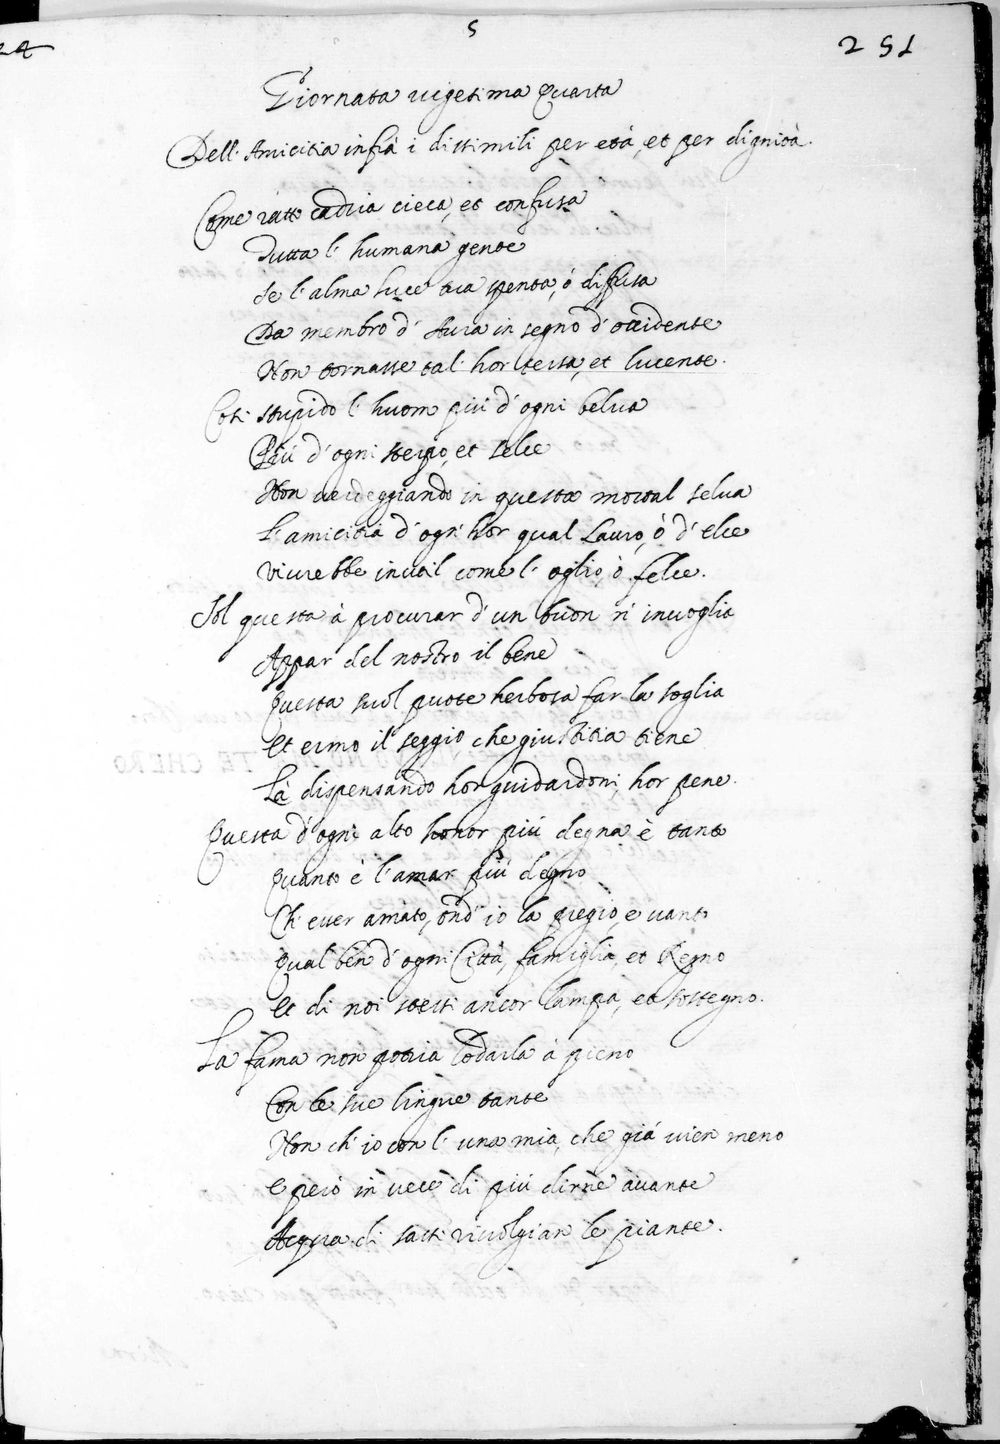 24
5
251
Giornata uigesima Quarta
Dell' Amicitia infrà i dissimili per età, et per dignità.
Come ratto cadria cieca, et confusa
Tutta l' humana gente
Se l' alma luce spenta, ò diffusa
Da membro d' Aura in segno d' occidente
Non tornasse tal' hor stessa, et lucente.
Cosi stupido l' huom più d' ogni belua
Più d' ogni sterpo, et selce
Non uerdeggiando in questa mortal selua
L' amicitia d' ogn' hor qual Lauro, ò d' elce
Viurebbe inutil come l' oglio, ò felce.
Sol questa à procurar d' un buon n' inuoglia
Appar del nostro il bene
Questa suol puote herbosa far la soglia
Et ermo il seggio che giustitia tiene
Là dispensando hor guidardoni hor pene.
Questa d' ogni alto honor più degna è tanto
Quanto è l' amar più degno
Ch' euer amato, ond' io la pregio, e uanto
Qual ben d' ogni Città, famiglia, et Regno
Et di noi stessi ancor lampa, et sostegno.
La fama non potria lodarla à pieno
Con le sue lingue tante
Non ch' io con l' una mia, che già uien meno
E però in uece di più dirne auante
Acqua di sasti riuolgian le piante.